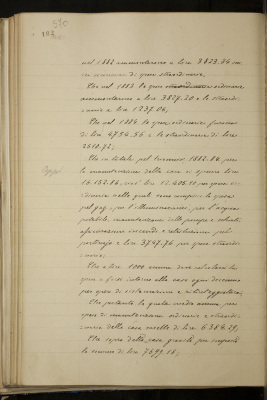 nel 1882 ammontarono a lire 3823.84
di spese straordinarie,
Che nel 1883 le spese straordinarie ordinarie
ammontarono a lire 3827.20 e le straordi-
narie a lire 1237.06;
Che nel 1884 le spese ordinarie furono
di lire 4754.55 e le straordinarie di lire
2618.72;
Che in totale nel triennio 1882.84, per
la manutenzione della casa si spesero lire
16.152.86, cioè lire 12.405.10 per spese or-
dinarie nelle quali sono comprese le spese
pel gaz, per l'illuminazione, per l'acqua
potabile, manutenzione delle pompe e
assicurazione incendi e retribuzione pel
portinajo e lire 3747.76 per spese straordi-
narie;
Che a lire 1000 annue deve calcolare le
spese a farsi intorno alla casa ogni decennio
per opere di
Che pertanto la quota media annua, per
spese di manutenzione ordinarie e straordi-
narie della casa risulta di lire 6384.29;
Che sopra della casa
la somma di lire 7699.18;